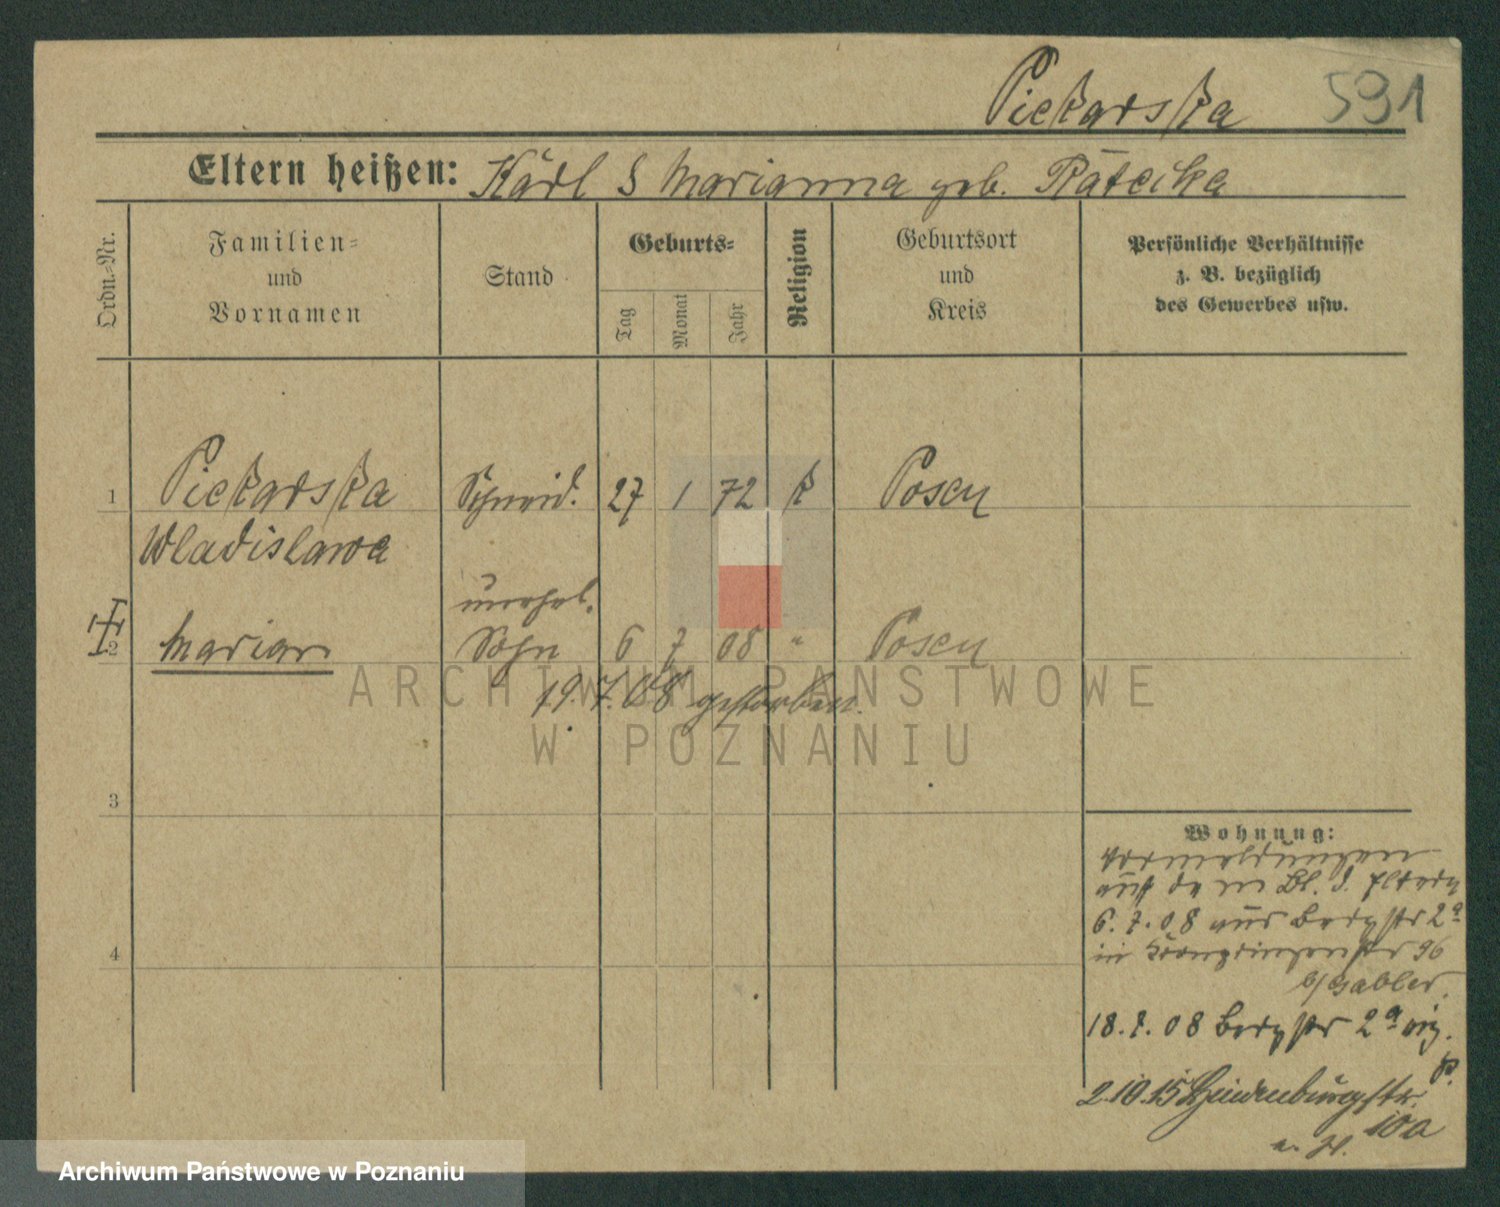 Piekarska 591
Eltern heißen: Karl & Marianna geb. Ratecika
Ordn.=Nr.
Familien=
und
Vornamen
Stand
Geburts=
Tag
Monat
Jahr
Religion
Geburtsort
und
Kreis
Persönliche Verhältnisse
z. B. bezüglich
des Gewerbes usw.
1 Piekarska Schneid. 27 1 72 k Posen
Wladislawa
unehel.
2 Marian Sohn 6 7 08 " Posen
19.7.08 gestorben.
3
4
Wohnung:
Vormeldungen
auf dem Bl. d. Eltern
6.7.08 aus Bergstr 2a
in Kronprinzenstr 96
b/ Gabler.
18.7.08 Bergstr 2a
2.10.15 Hindenburgstr.
10a
ARCHIWUM PAŃSTWOWE
W POZNANIU
Archiwum Państwowe w Poznaniu